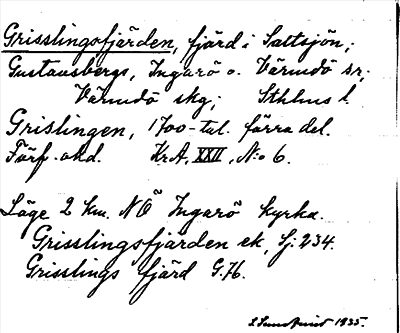 Grisslingsfjärden, fjärd i Saltsjön;
Gustavsbergs, Ingarö o. Värmdö sr;
Värmdö skg; Sthlms l.
Grislingen, 1700-tal. förra del.
Förf. okd. Kr.A. XXII, N:o 6.
Läge 2 km. NÖ Ingarö kyrka.
Grisslingsfjärden ek, Sj: 234.
Grisslings fjärd G:76.
Sundqvist 1935.